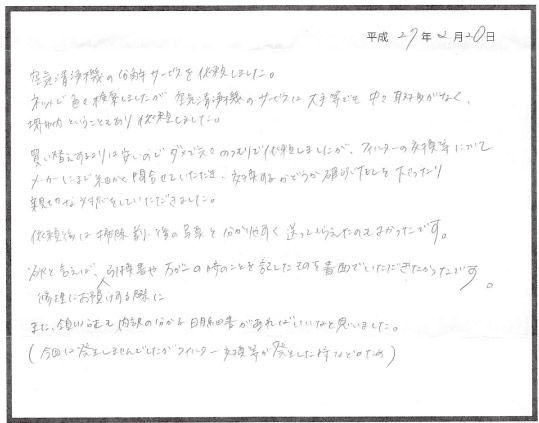 平成 27年 2月 20日
空気清浄機の分解サービスを依頼しました。
ネットで色々検索しましたが 空気清浄機のサービスは 大手等でも 中々 取扱いがなく、
堺市内 ということもあり 依頼しました。
買い替えするよりは安いので ダメで元々のつもりで依頼しましたが、フィルターの交換等について
メーカーにまで 細かく 問合せていただき、交換するかどうか 確認のTELを 下さったり
親切な対応をしていただきました。
依頼後は 掃除前・後の写真を 分かりやすく 送ってもらえたのでよかったです。
欲を言えば、引換書や 万が一の時のことを記したものを書面でいただきたかったです。
修理にお預けする際に
また、領収証で 内訳の分かる 明細書があれば いいなと思いました。
(今回は 発生しませんでしたが フィルター 交換等が 発生した時などのため)